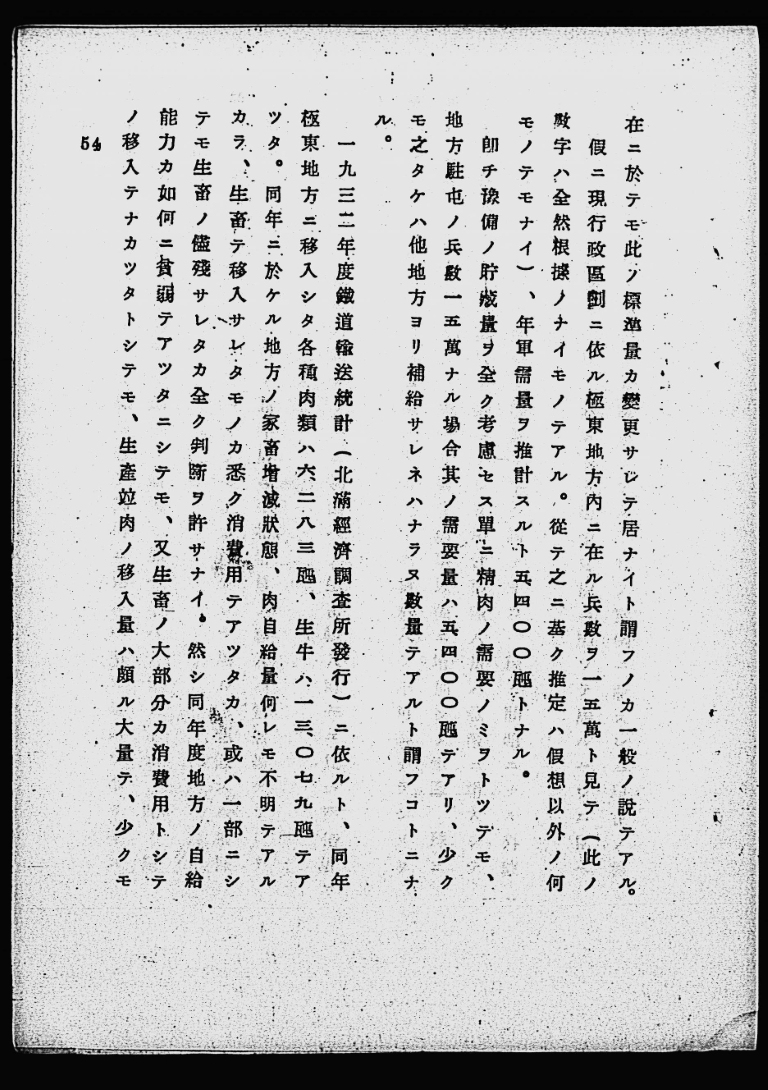 在ニ於テモ此ノ標準量カ變更サレテ居ナイト謂フノカ一般ノ說テアル。
假ニ現行政區劃ニ依ル極東地方內ニ在ル兵數ヲ一五萬ト見テ(此ノ
數字ハ全然根據ノナイモノテアル。從テ之ニ基ク推定ハ假想以外ノ何
モノテモナイ)、年軍需量ヲ推計スルト五、四〇〇瓲トナル。
卽チ豫備ノ貯藏量ヲ全ク考慮セス單ニ精肉ノ需要ノミヲトツテモ、
地方駐屯ノ兵數一五萬ナル場合其ノ需要量ハ五、四〇〇瓲テアリ、少ク
モ之タケハ他地方ヨリ補給サレネハナラヌ數量テアルト謂フコトニナ
ル。
一九三二年度鐵道輸送統計(北滿經濟調査所發行)ニ依ルト、同年
極東地方ニ移入シタ各種肉類ハ六、二八三瓲、生牛ハ一三、〇七九瓲テア
ツタ。同年ニ於ケル地方ノ家畜增減狀態、肉自給量何レモ不明テアル
カラ、生畜テ移入サレタモノカ悉ク消費用テアツタカ、或ハ一部ニシ
テモ生畜ノ儘殘サレタカ全ク判斷ヲ許サナイ。然シ同年度地方ノ自給
能力カ如何ニ貧弱テアツタニシテモ、又生畜ノ大部分カ消費用トシテ
ノ移入テナカツタトシテモ、生產竝肉ノ移入量ハ頗ル大量テ、少クモ
54